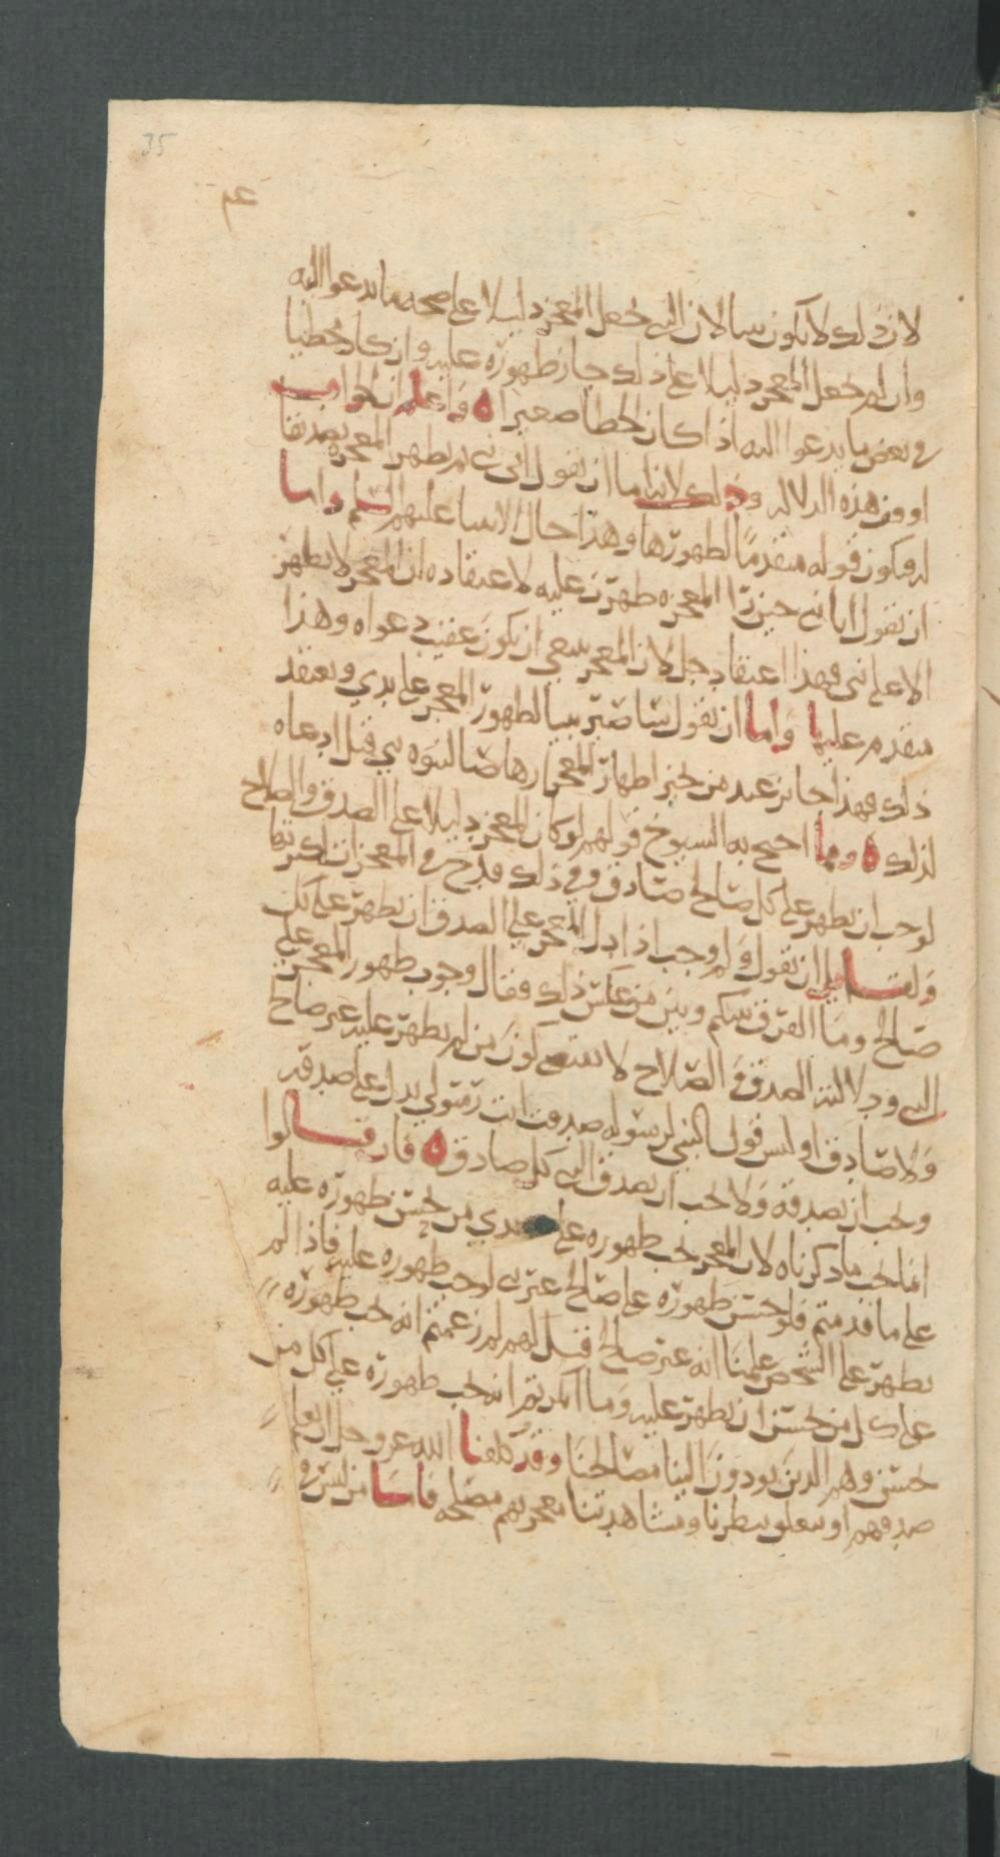 35
عم
لان ذلك لا يكون نبيا لان الذي جعل المعجز دليلا على صحة ما يدعوا اليه
وان لم يجعل المعجز دليلا على ذلك جاز ظهوره عليه وان كان مخطيا
في بعض ما يدعوا اليه اذا كان الخطا صغيرا ه واعلم ان الجواب
او وفق هذه الدلالة وذلك لانه اما ان يقول اني نبي ثم يظهر المعجز تصديقا
له فيكون قوله متقدما لظهورها وهذا حال الانبيا عليهم السلم واما
ان يقول انا نبي حين ترا المعجزه ظهرت عليه لاعتقاده ان المعجز لا يظهر
الا على نبي فهذا اعتقاد جهل لان المعجز ينبغي ان يكون عقيب دعواه وهذا
متقدم عليها واما ان يقول سأصير نبيا لظهور المعجز على يدي ويعتقد
ذلك فهذا جايز عند من يجيز اظهار المعجز ارهاصا لنبوه نبي قبل ادعاه
لذلك ه ومما احتج به الشيوخ قولهم لو كان المعجز دليلا على الصدق والصلاح
لوجب ان يظهر على كل صالح صادق وفي ذلك قدح في المعجزات لكثرتها
ولقايل ان يقول ولم وجب اذا دل المعجز على الصدق ان يظهر على كل
صالح وما الفرق بينكم وبين من عكس ذلك فقال وجوب ظهور المعجز على
النبي ودلالته الصدق والصلاح لا يقتضي كون من لم يظهر عليه غير صالح
ولا صادق او ليس قول النبي لرسوله صدقت انت رسولي يدل على صدقه
ويجب ان يصدقه ولا يجب ان يصدق النبي كل صادق ه فان قالوا
انما يجب ما ذكرناه لان المعجز يجب ظهوره على يدي من يحسن ظهوره عليه
على ما قدمتم فلو حسن ظهوره على صالح غير نبي لوجب ظهوره عليه فاذا لم
يظهر على الشخص علمنا انه غير صالح قيل لهم لم زعمتم انه يجب ظهوره
على كل من يحسن ان يظهر عليه وما انكرتم انه يجب ظهوره على كل من
حسن وهم الذين يودون الينا مصالحنا وقد كلفنا الله عز وجل ان نعلم
صدقهم او يتعلق بنظرنا ومشاهدتنا معجزهم مصلحة فاما من ليس في